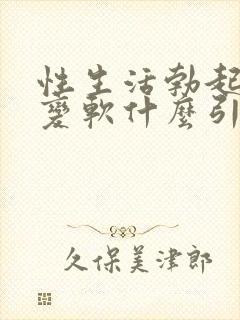 性生活勃起
變軟什麼引
久保美津郎